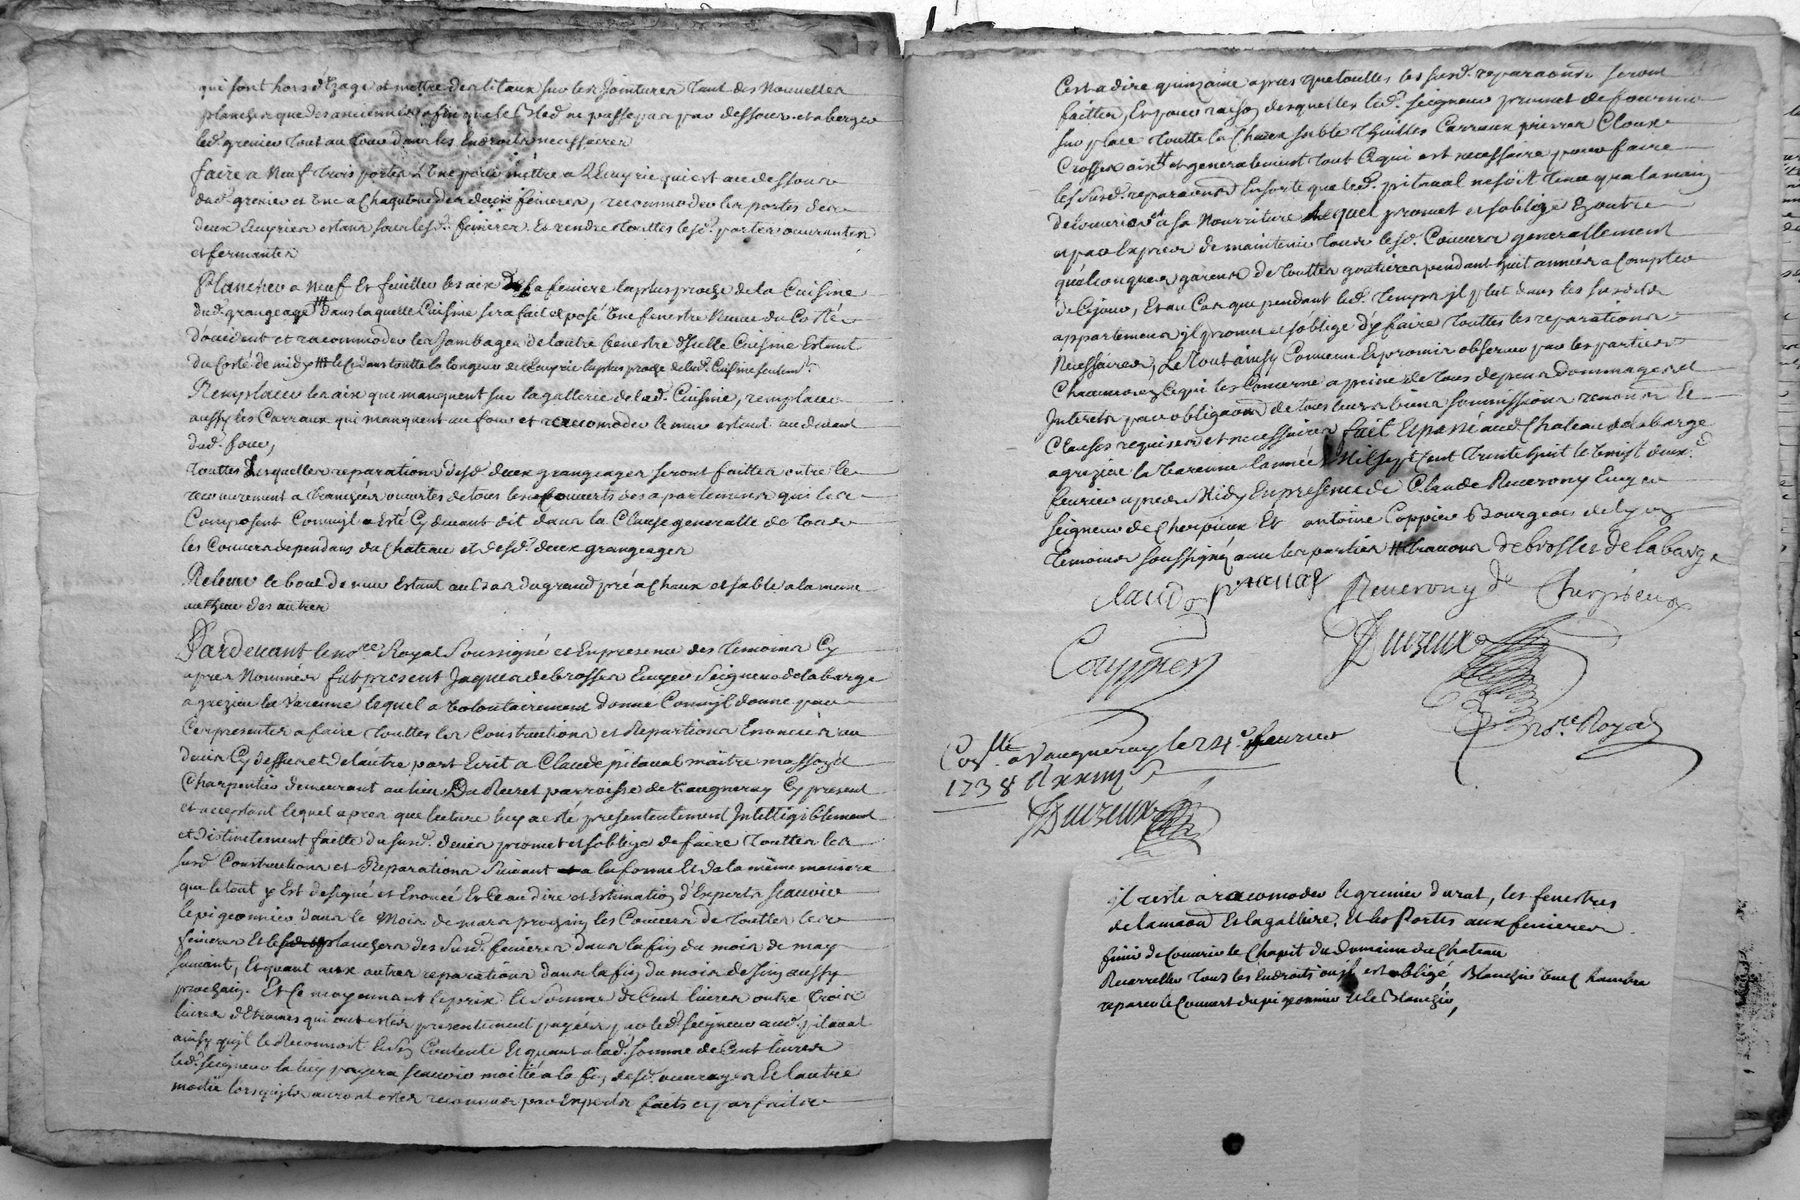 qui sont hors d'Uzage et mettre des litaux sur les Jointures tant des Nouvelles
planches que des anciennes afin que le Bled ne passe pas par dessous et aberger
led. grenier tout au tour dans les Endroits necessaires
faire a Neuf trois portes L'Une pour mettre a L'Ecuyrie qui est au dessous
dud. grenier et Une a Chaqu'une des deux feinieres, recommoder les portes des
deux Ecuyries estant sous lesd. feinieres Et rendre touttes lesd. portes ouvrantes
et fermantes
Plancher a Neuf Et feuiller les aix De la feiniere la plus proche de la Cuisine
dud. grangeage dans laquelle Cuisine sera fait et posé Une fenestre Neuve du Costé
d'occident et racommoder les Jambages de lautre fenestre d'Icelle Cuisine Estant
du Costé de midy et Ce dans toutte la longueur de l'Ecuyrie la plus proche de lad. Cuisine seulemt.
Remplacer les aix qui manquent sur la gallerie de lad. Cuisine, remplacer
aussy les Carraux qui manquent au four et racomoder le mur estant au devant
dud. four,
touttes Lesquelles reparations desd. deux grangeages seront faittes outre le
recouvrement a tranchées ouvertes de tous les Couverts des apartemens qui les
Composent Comm'il a Esté Cy devant dit dans la Clause generalle de tous
les Couverts dependans du Chateau et desd. deux grangeages
Relever le bout de mur Estant au bas du grand pré a Chaux et sable a la meme
autheur des autres
Pardevant le nore. Royal Soussigné et En presence des temoins Cy
apres Nommés fut present Jaques debrosses Ecuyer Seigneur de la barge
a grezieu la Varenne lequel a volontairement donné Comm'il donne par
Ces presentes a faire touttes les Constructions et Reparations Enoncées au
devis Cy dessus et de lautre part Ecrit a Claude pitaval maitre masson et
Charpentier demeurant au lieu Du Recret parroisse de Vaugneray Cy present
et acceptant lequel apres que lecture luy a esté presentement Intelligiblement
et distinctement faitte du susd. devis promet et s'oblige de faire touttes les
susd. Constructions et Reparations Suivant la forme Et de la même maniere
que le tout y Est designé et Enoncé Et Ce au dire et Estimation d'Experts scavoir
le pigeonnier dans le Mois de mars prochain les Couverts de touttes les
feinieres Et les planchers des Susd. feinieres dans la fin du mois de may
suivant, Et quant aux autres reparations dans la fin du mois de Juin aussy
prochain. Et Ce moyennant le prix Et Somme de Cent livres outre trois
livres d'Etrennes qui ont estées presentement payées par led. seigneur aud. pitaval
ainsy qu'il le Reconnoit Et s'en Contente Et quant a lad. somme de Cent livres
led. seigneur la luy payera scavoir moitié a la fin desd. ouvrages Et lautre
moitié lorsqu'ils auront estés reconnus par Experts faits et parfaits
C'est a dire quinzaine apres que touttes les susd. reparaons. seront
faittes, Et pour raison desquelles led. seigneur promet de fournir
sur place toutte la Chaux sable Thuilles Carraux pierres Cloux
Crosses aix et generalement tout Ce qui est necessaire pour faire
les susd. reparaons. En sorte que led. pitaval ne soit tenu qu'a la main
d'Oeuvre et a sa Nourriture Lequel promet et s'oblige En outre
et par Exprès de maintenir tous lesd. Couverts generallement
quelconques garents de touttes goutieres pendant huit années a Compter
de Ce jour, Et au Cas que pendant led. temps il plut dans les susdits
appartemens il promet et s'oblige d'y faire touttes les reparations
Necessaires, Le Tout ainsy Convenu Et promis observer par les parties
Chacune en Ce qui les Concerne a peine de tous depens dommages et
Interets par obligaons. de tous leurs biens soumissions renons. Et
Clauses requises et necessaires fait Et passé aud. Chateau de la barge
a grezieu la Varenne l'année Mil sept Cent trente huit le vingt deux
fevrier apres Midy En presence de Claude Reverony Ecuyer
seigneur de Cherpieux Et antoine Coppier Bourgeois de lyon
temoins soussignés avec les parties debrosses de la barge
claude pitaval Reverony de Cherpieux
Coppier Duizeux
nore. Royal
Collé. a Vaugneray le 24e. fevrier
1738
Duizeux
il reste a racomoder le grenier durat, les fenestres
de la maon Et la gallerie, Et les Portes aux feinieres
finir de Couvrir le Chapit du Domaine du Chateau
Recarreller tous les Endroits ou il est obligé, Blanchir une Chambre
reparer le Couvert du pigeonnier et le Blanchir,